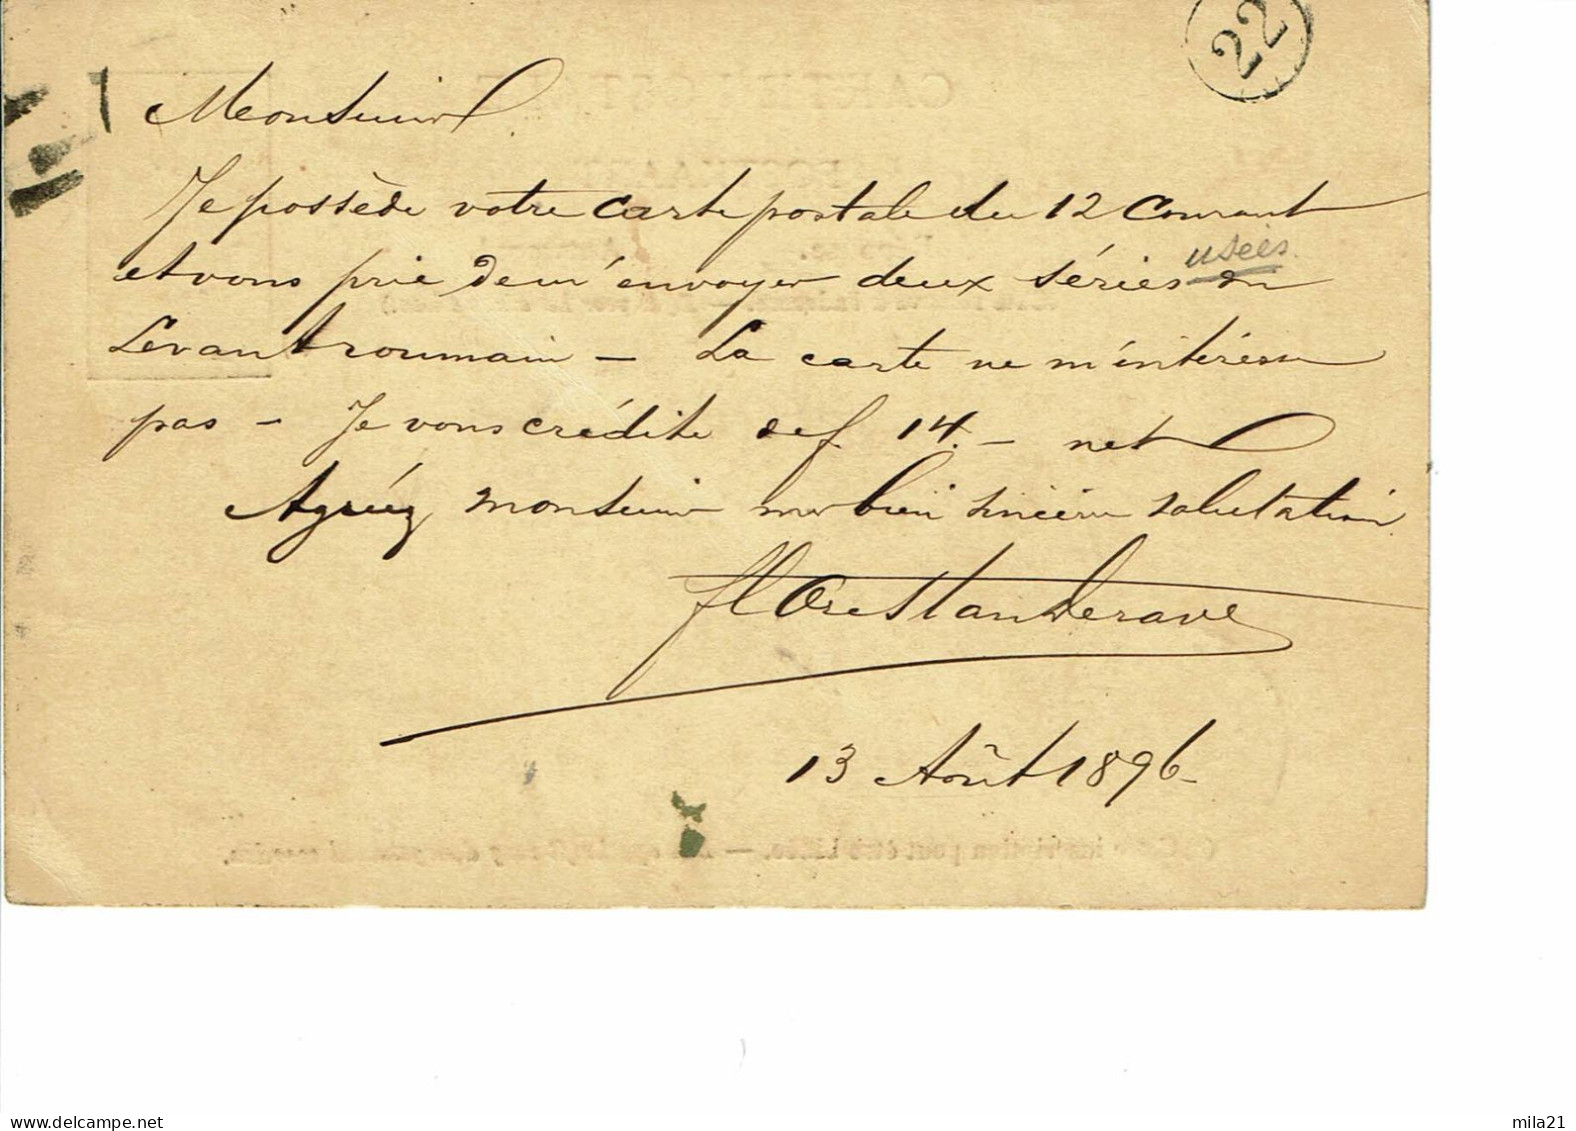 22
Monsieur
Je possède votre carte postale du 12 Courant
et vous prie de m'envoyer deux séries du
usées
Levant roumain — La carte ne m'intéresse
pas — Je vous crédite de f. 14.— net
Agréez monsieur mes bien sincères salutations
Florestan
13 Août 1896
mila21